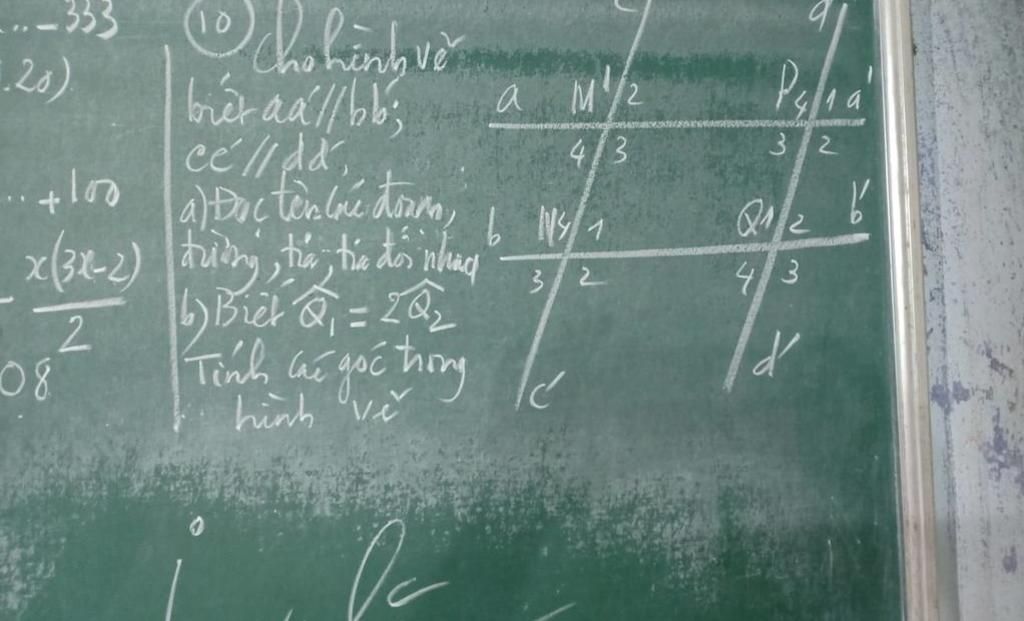 ...-333
.20)
...+100
x(3x-2)
2
08
10
Cho hình vẽ
biết aa'//bb';
cc'//dd',
a) Đọc tên các đoạn,
đường, tia, tia đối nhau
b) Biết Q̂₁ = 2Q̂₂
Tính các góc trong
hình vẽ
c d
a M 1 2 P 4 1 a'
4 3 3 2
b N 4 1 Q 1 2 b'
3 2 4 3
c' d'